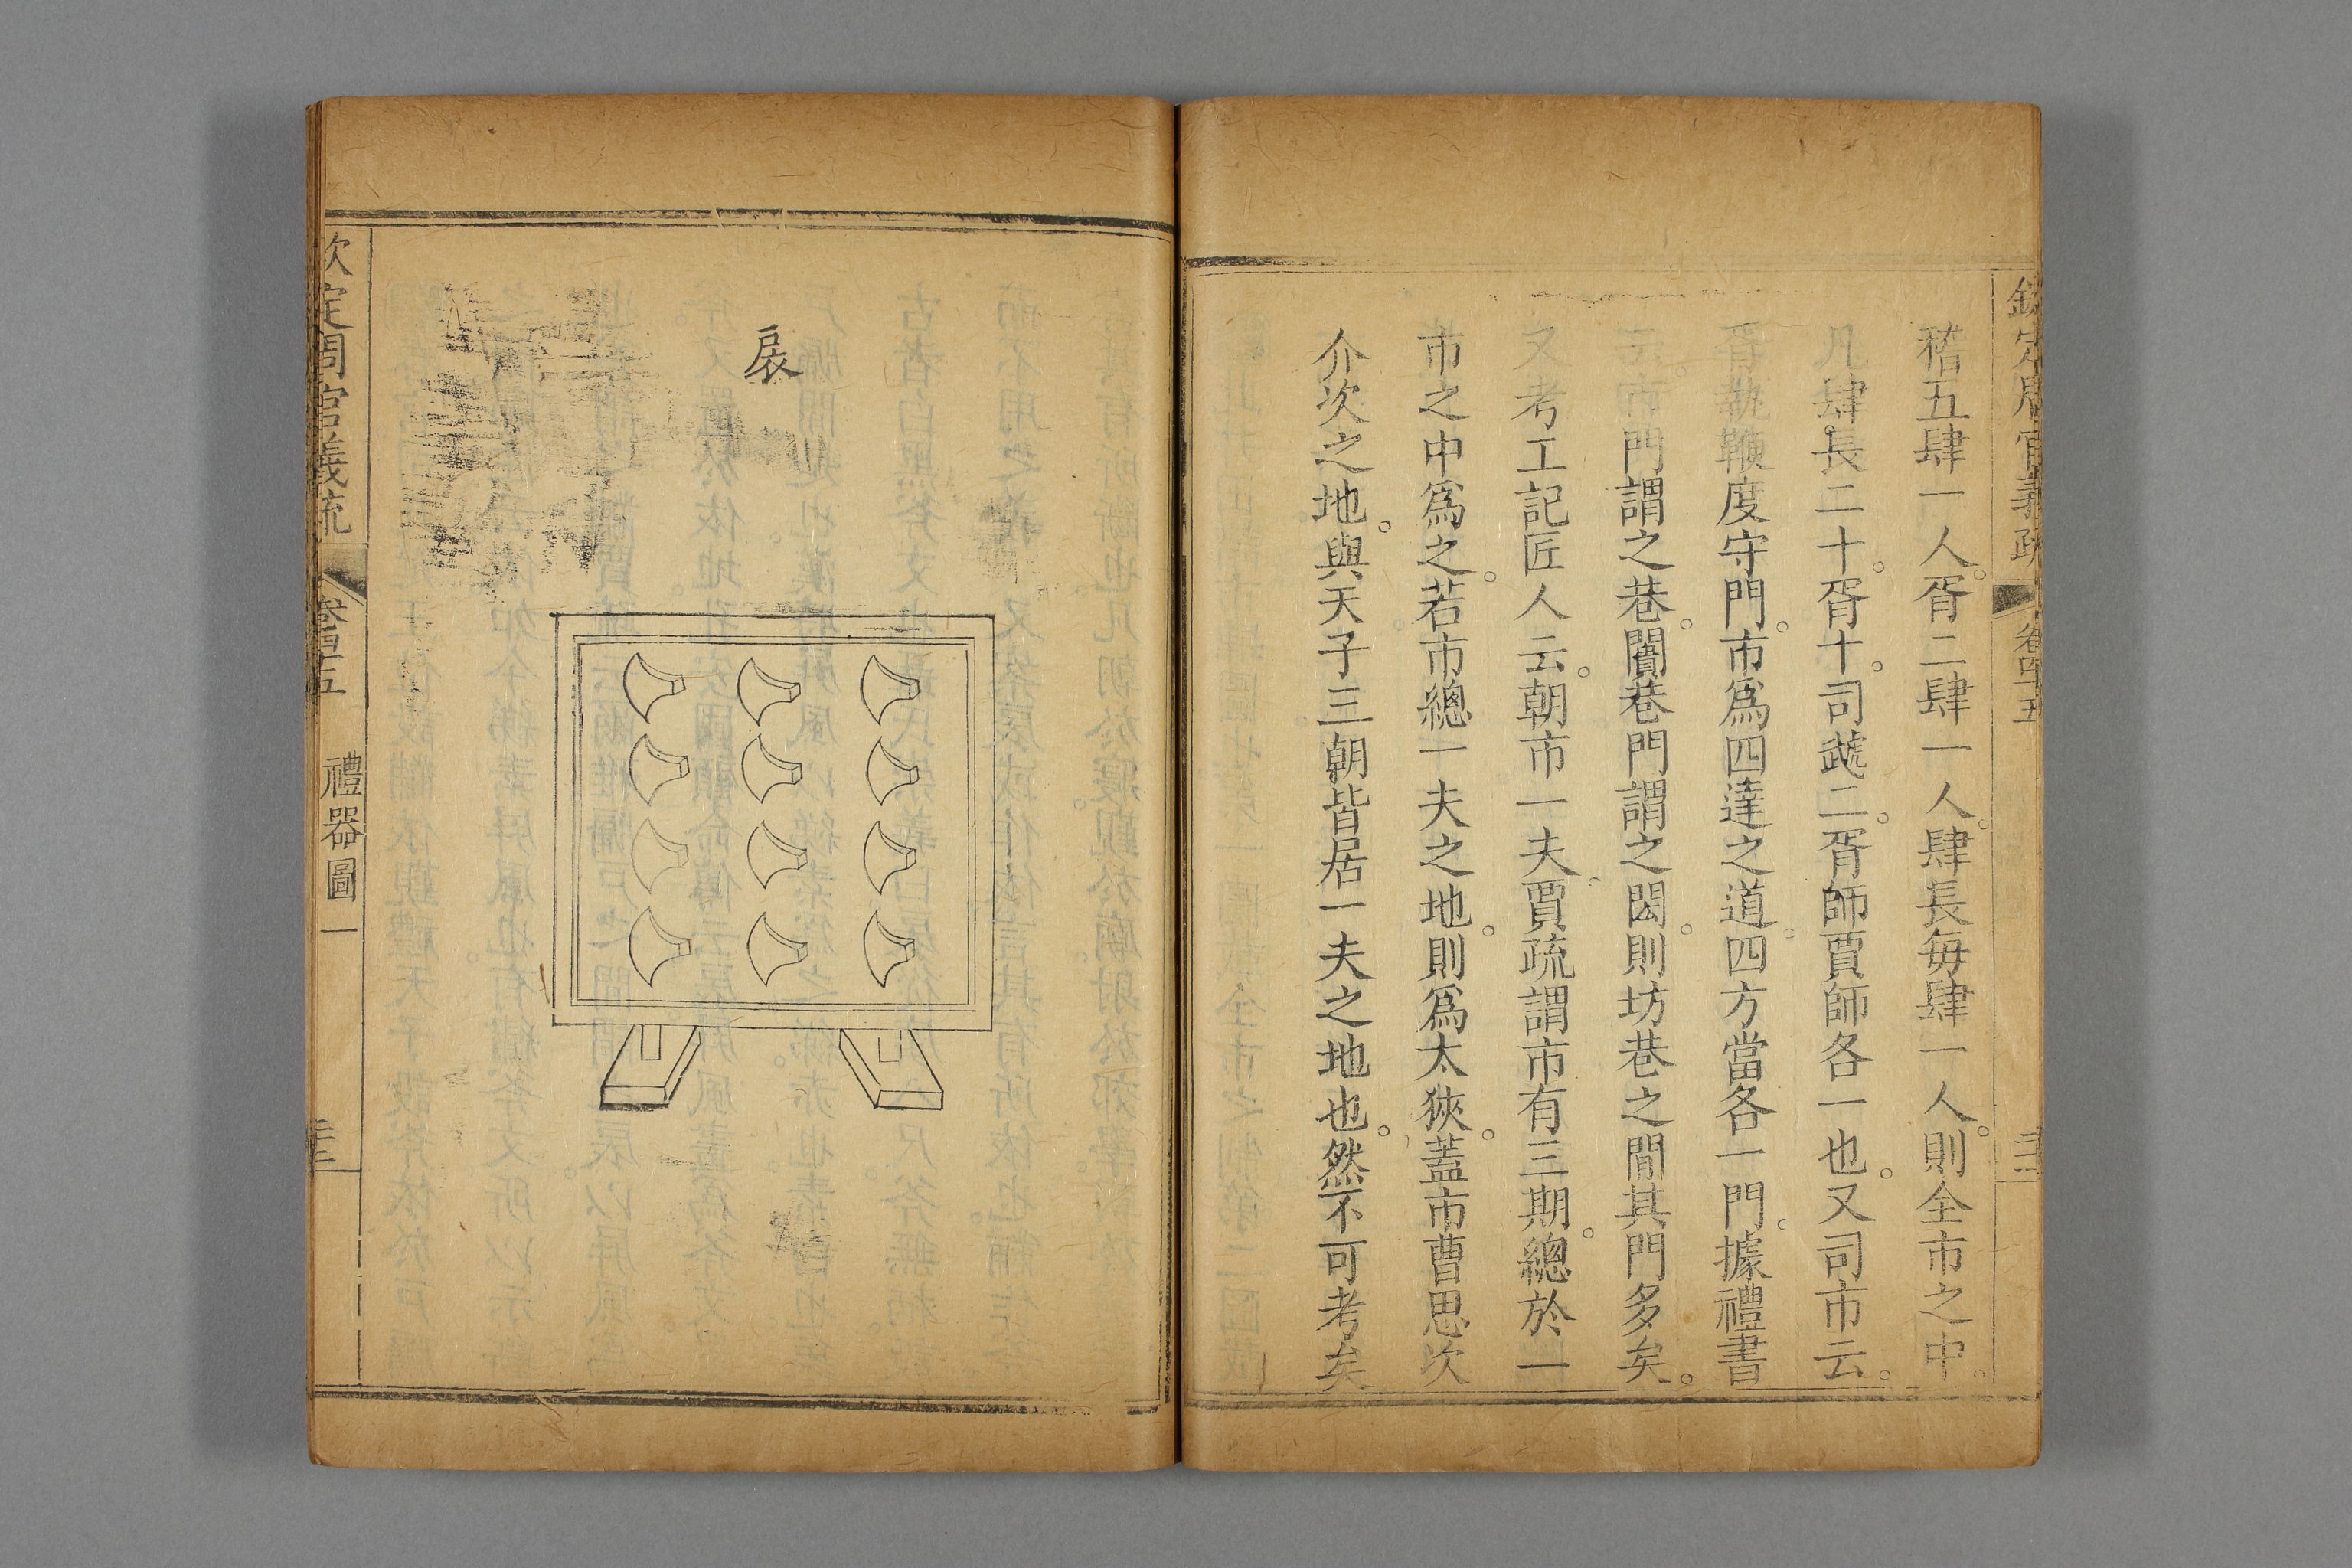 欽定周官義疏 卷四十五
稽五肆一人胥二肆一人肆長每肆一人則全市之中
凡肆長二十胥十司虣二胥師賈師各一也又司市云
胥執鞭度守門市爲四達之道四方當各一門據禮書
云市門謂之巷闠巷門謂之閎則坊巷之閒其門多矣
又考工記匠人云朝市一夫賈疏謂市有三期總於一
市之中爲之若市總一夫之地則爲太狹蓋市曹思次
介次之地與天子三朝皆居一夫之地也然不可考矣
扆
欽定周官義疏 禮器圖一